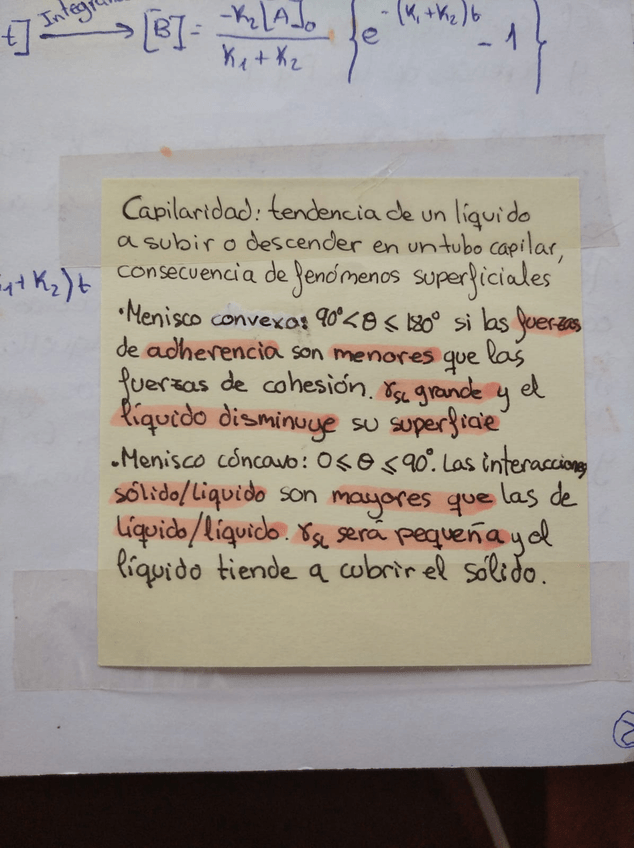 t] Integran [B] = -K₂[A]₀ / K₁+K₂ { e^-(K₁+K₂)t - 1 }
Capilaridad: tendencia de un líquido
a subir o descender en un tubo capilar,
₁+K₂)t
consecuencia de fenómenos superficiales
·Menisco convexo: 90°<θ⩽180° si las fuerzas
de adherencia son menores que las
fuerzas de cohesión. γSL grande y el
líquido disminuye su superficie
·Menisco cóncavo: 0⩽θ⩽90°. Las interacciones
sólido/líquido son mayores que las de
líquido/líquido. γSL será pequeña y el
líquido tiende a cubrir el sólido.